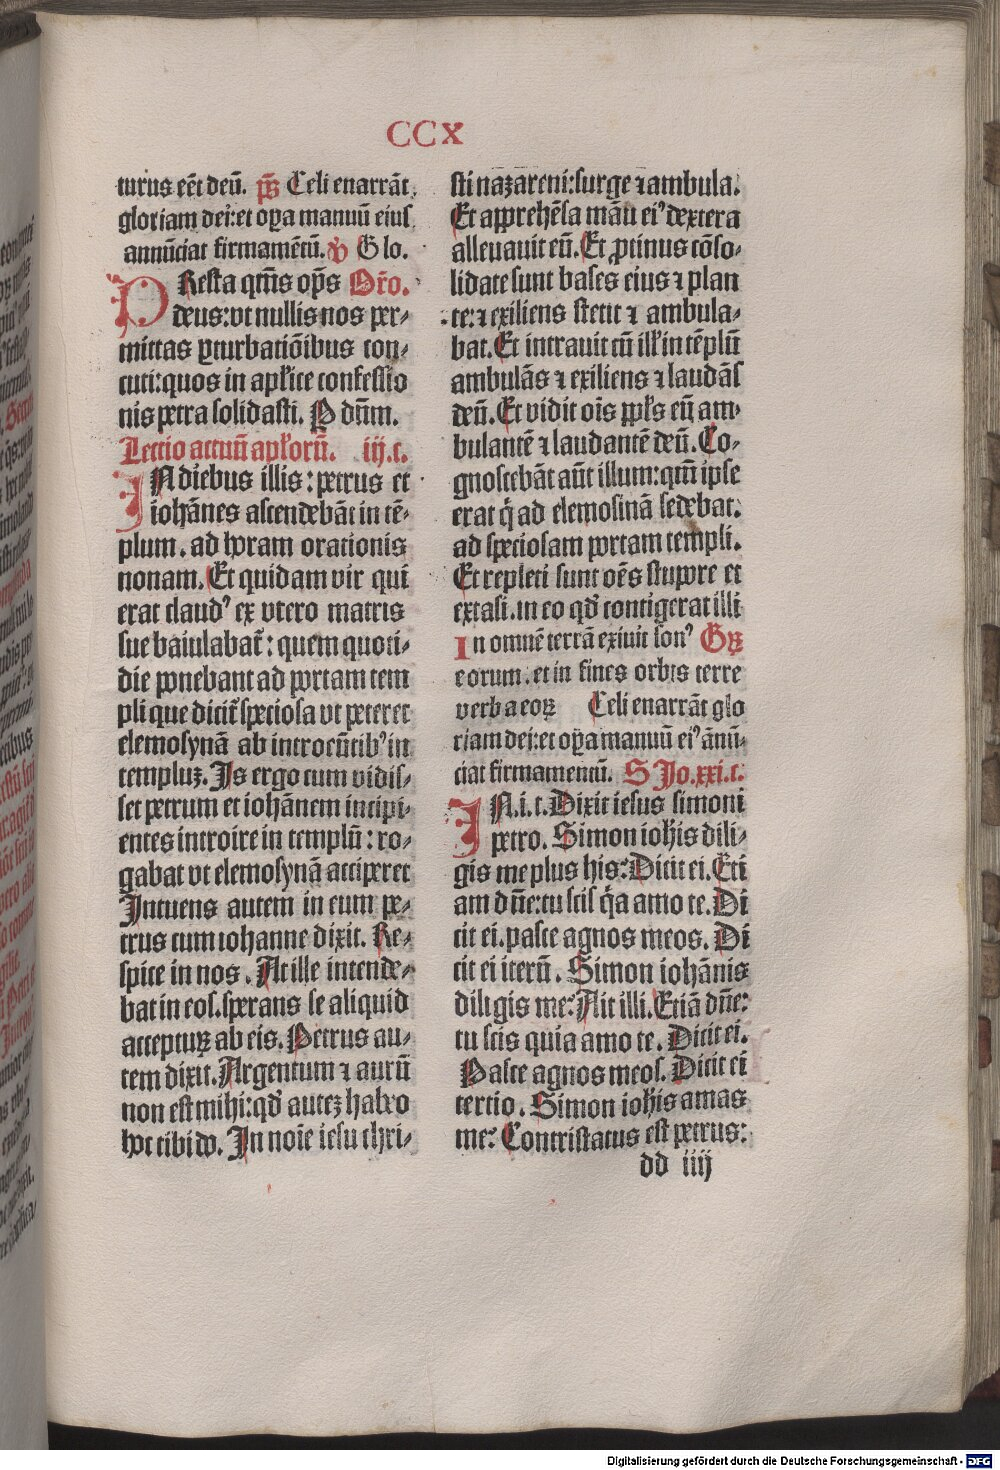 CCX
turus eēt deū. p̄s Celi enarrāt
gloriam dei: et oꝑa manuū eius
annūciat firmamētū. ꝟ Glo.
PResta qm̄s op̄s Or̄o.
deus: vt nullis nos per⸗
mittas ꝑturbatiōibus con⸗
cuti: quos in apl'ice confessio
nis petra solidasti. P dn̄m.
Lectio actuū apl'orū. iij.c.
IN diebus illis: petrus et
iohānes ascendebāt in tē⸗
plum. ad horam orationis
nonam. Et quidam vir qui
erat claudꝰ ex vtero matris
sue baiulabat̄: quem quoti⸗
die ponebant ad portam tem
pli que dicit̄ speciosa vt peteret
elemosynā ab introeūtibꝰ in
templuꝫ. Is ergo cum vidis⸗
set petrum et iohānem incipi
entes introire in templū: ro⸗
gabat vt elemosynā acciperet
Intuens autem in eum pe⸗
trus cum iohanne dixit. Re⸗
spice in nos. At ille intende⸗
bat in eos. sperans se aliquid
accepturꝫ ab eis. Petrus au⸗
tem dixit. Argentum ⁊ aurū
non est mihi: qd̄ auteꝫ habeo
hoc tibi do. In noīe iesu chri⸗
sti nazareni: surge ⁊ ambula.
Et appreheēsa māu eiꝰ dextera
alleuauit eū. Et ꝓtinus cōso⸗
lidate sunt bases eius ⁊ plan
te: ⁊ exiliens stetit ⁊ ambula⸗
bat. Et intrauit cū ill' in tēplū
ambulās ⁊ exiliens ⁊ laudās
deū. Et vidit oīs ppl's eū am⸗
bulantē ⁊ laudantē deū. Co⸗
gnoscebāt aūt illum: qm̄ ipse
erat q̇ ad elemosinā sedebat.
ad speciosam portam templi.
Et repleti sunt oēs stupore et
extasi. in eo qd̄ contigerat illi
In omnē terrā exiuit sonꝰ Gꝝ
eorum. et in fines orbis terre
verba eoꝝ Celi enarrāt glo
riam dei: et oꝑa manuū eiꝰ ānū
ciat firmamentū. S Jo. xxi.c.
IN.i.t. Dixit iesus simoni
petro. Simon ioh̄is dili⸗
gis me plus his? Dicit ei. Eti
am dn̄e: tu scis q̇a amo te. Di
cit ei. pasce agnos meos. Di
cit ei iterū. Simon iohānis
diligis me? Ait illi. Etiā dn̄e:
tu scis quia amo te. Dicit ei.
Pasce agnos meos. Dicit ei
tertio. Simon ioh̄is amas
me? Contristatus est petrus:
dd iiij
Digitalisierung gefördert durch die Deutsche Forschungsgemeinschaft - DFG